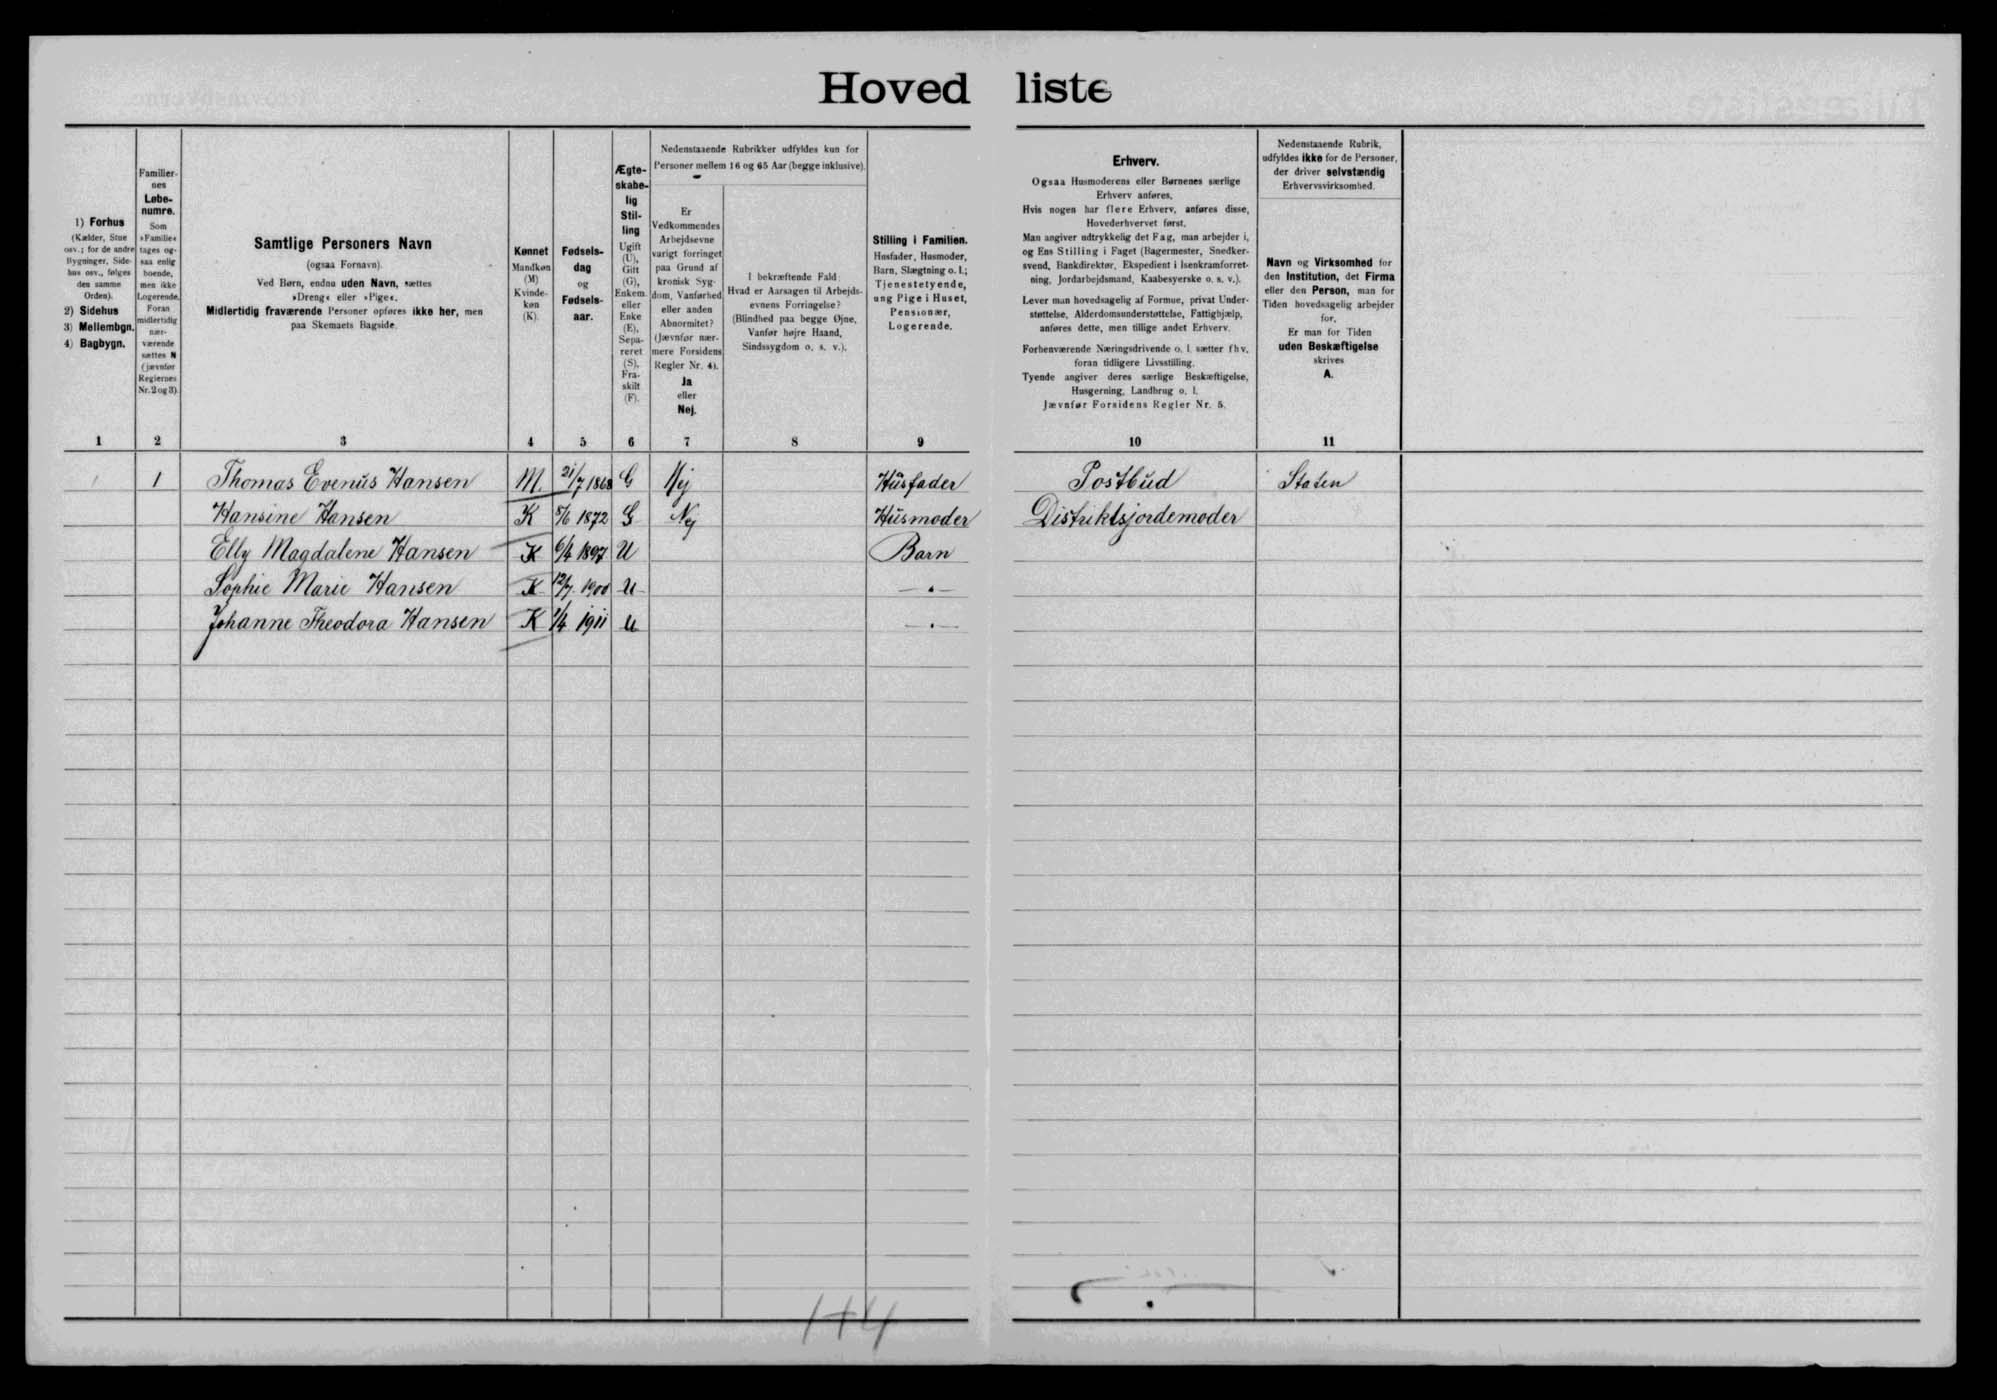 Hovedliste
1) Forhus
(Kælder, Stue
osv.; for de andre
Bygninger, Side-
hus osv., følges
den samme
Orden).
2) Sidehus
3) Mellembgn.
4) Bagbygn.
Familier-
nes
Løbe-
numre.
Som
»Familie«
tages og-
saa enlig
boende,
men ikke
Logerende.
Foran
midlertidig
nær-
værende
sættes N
(jævnfør
Reglernes
Nr. 2 og 3).
Samtlige Personers Navn
(ogsaa Fornavn).
Ved Børn, endnu uden Navn, sættes
»Dreng« eller »Pige«.
Midlertidig fraværende Personer opføres ikke her, men
paa Skemaets Bagside.
Kønnet
Mandkøn
(M)
Kvinde-
køn
(K).
Fødsels-
dag
og
Fødsels-
aar.
Ægte-
skabe-
lig
Stil-
ling
Ugift
(U),
Gift
(G),
Enkem.
eller
Enke
(E),
Sepa-
reret
(S),
Fra-
skilt
(F).
Nedenstaaende Rubrikker udfyldes kun for
Personer mellem 16 og 65 Aar (begge inklusive).
Er
Vedkommendes
Arbejdsevne
varigt forringet
paa Grund af
kronisk Syg-
dom, Vanførhed
eller anden
Abnormitet?
(Jævnfør nær-
mere Forsidens
Regler Nr. 4).
Ja
eller
Nej.
I bekræftende Fald:
Hvad er Aarsagen til Arbejds-
evnens Forringelse?
(Blindhed paa begge Øjne,
Vanfør højre Haand,
Sindssygdom o. s. v.).
Stilling i Familien.
Husfader, Husmoder,
Barn, Slægtning o. l.;
Tjenestetyende,
ung Pige i Huset,
Pensionær,
Logerende.
Erhverv.
Ogsaa Husmoderens eller Børnenes særlige
Erhverv anføres.
Hvis nogen har flere Erhverv, anføres disse,
Hovederhvervet først.
Man angiver udtrykkelig det Fag, man arbejder i,
og Ens Stilling i Faget (Bagermester, Snedker-
svend, Bankdirektør, Ekspedient i Isenkramforret-
ning, Jordarbejdsmand, Kaabesyerske o. s. v.).
Lever man hovedsagelig af Formue, privat Under-
støttelse, Alderdomsunderstøttelse, Fattighjælp,
anføres dette, men tillige andet Erhverv.
Forhenværende Næringsdrivende o. l. sætter fhv.
foran tidligere Livsstilling.
Tyende angiver deres særlige Beskæftigelse,
Husgerning, Landbrug o. l.
Jævnfør Forsidens Regler Nr. 5.
Nedenstaaende Rubrik,
udfyldes ikke for de Personer,
der driver selvstændig
Erhvervsvirksomhed.
Navn og Virksomhed for
den Institution, det Firma
eller den Person, man for
Tiden hovedsagelig arbejder
for.
Er man for Tiden
uden Beskæftigelse
skrives
A.
1 2 3 4 5 6 7 8 9 10 11
1 1 Thomas Evenüs Hansen M. 21/7 1868 G Nej Hüsfader Postbüd Staten
Hansine Hansen K 8/6 1872 G Nej Hüsmoder Distriktsjordemoder
Elly Magdalene Hansen K 6/4 1897 U Barn
Sophie Marie Hansen K 12/7 1900 U — " —
Johanne Theodora Hansen K 1/4 1911 U — " —
1+4